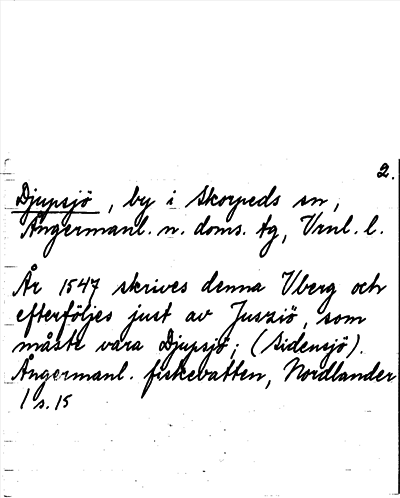 2.
Djupsjö, by i Skorpeds sn,
Ångermanl. n. doms. tg, Vrnl. l.
År 1547 skrives denna Vberg och
efterföljes just av Jusziö, som
måste vara Djupsjö; (Sidensjö).
Ångermanl. fiskevatten, Nordlander
1 s. 15